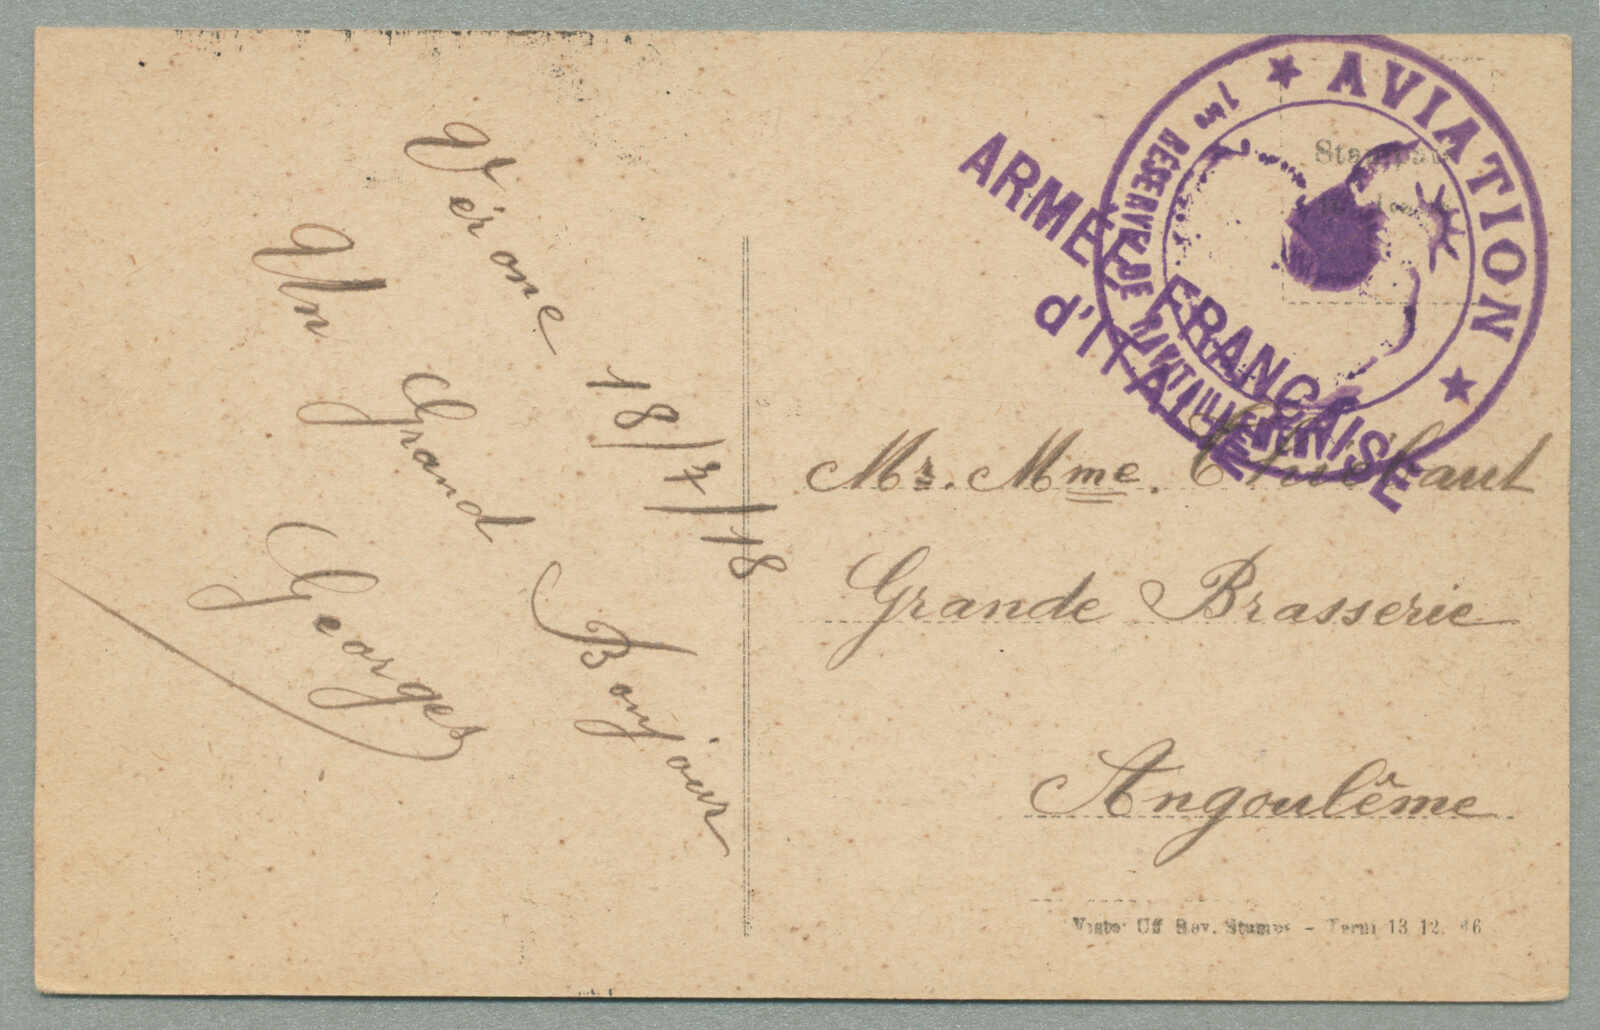 Vérone 18/7/18
Un Grand Bonjour
Georges
★ AVIATION ★
RÉSERVE DE RAVITAILLEMENT
ARMÉE FRANÇAISE
d'ITALIE
Mr. Mme. Thiébaut
Grande Brasserie
Angoulême
Visto Uff Rev. Stampe - Terni 13 12. 16